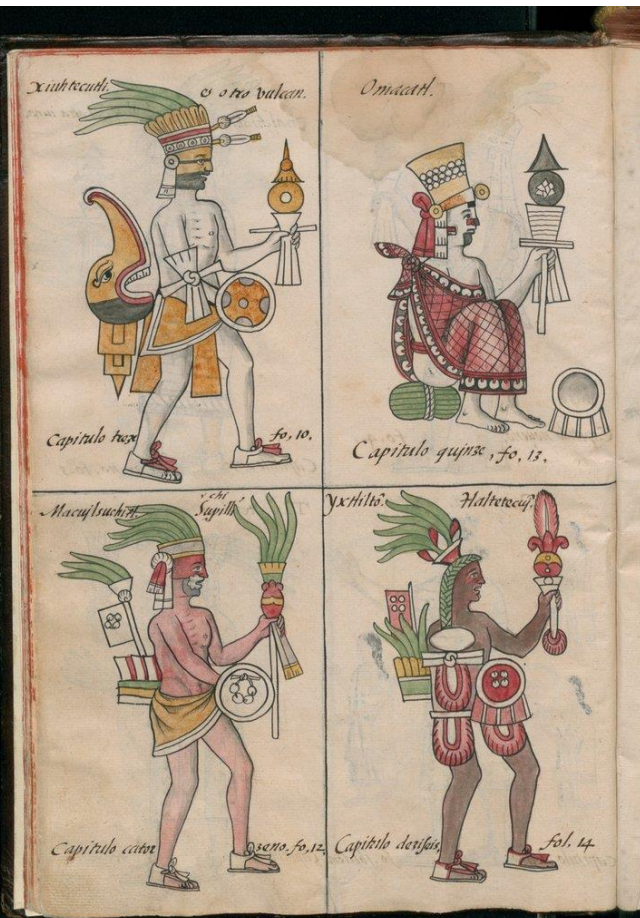 Xiuhtecutli. es otro vulcan.
Capitulo treze fo, 10.
Omacatl.
Capitulo quinze, fo, 13.
Macuilsuchitl. suchi pilli
Capitulo cator zeno. fo, 12.
yxtlilto. tlaltetecuj.
Capitulo deziseis, fol, 14